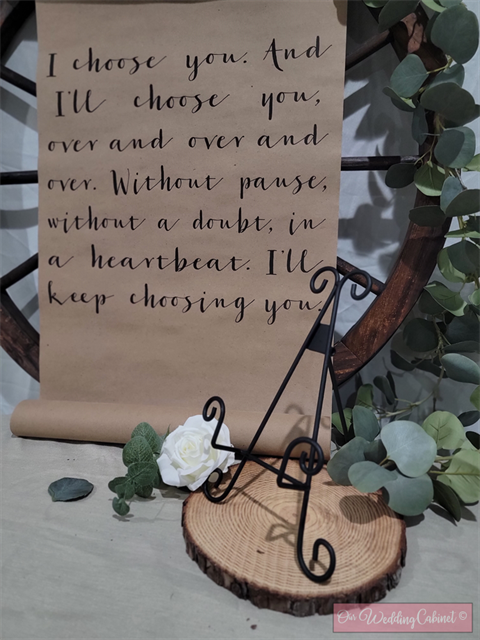 I choose you. And
I'll choose you,
over and over and
over. Without pause,
without a doubt, in
a heartbeat. I'll
keep choosing you.
Our Wedding Cabinet ©